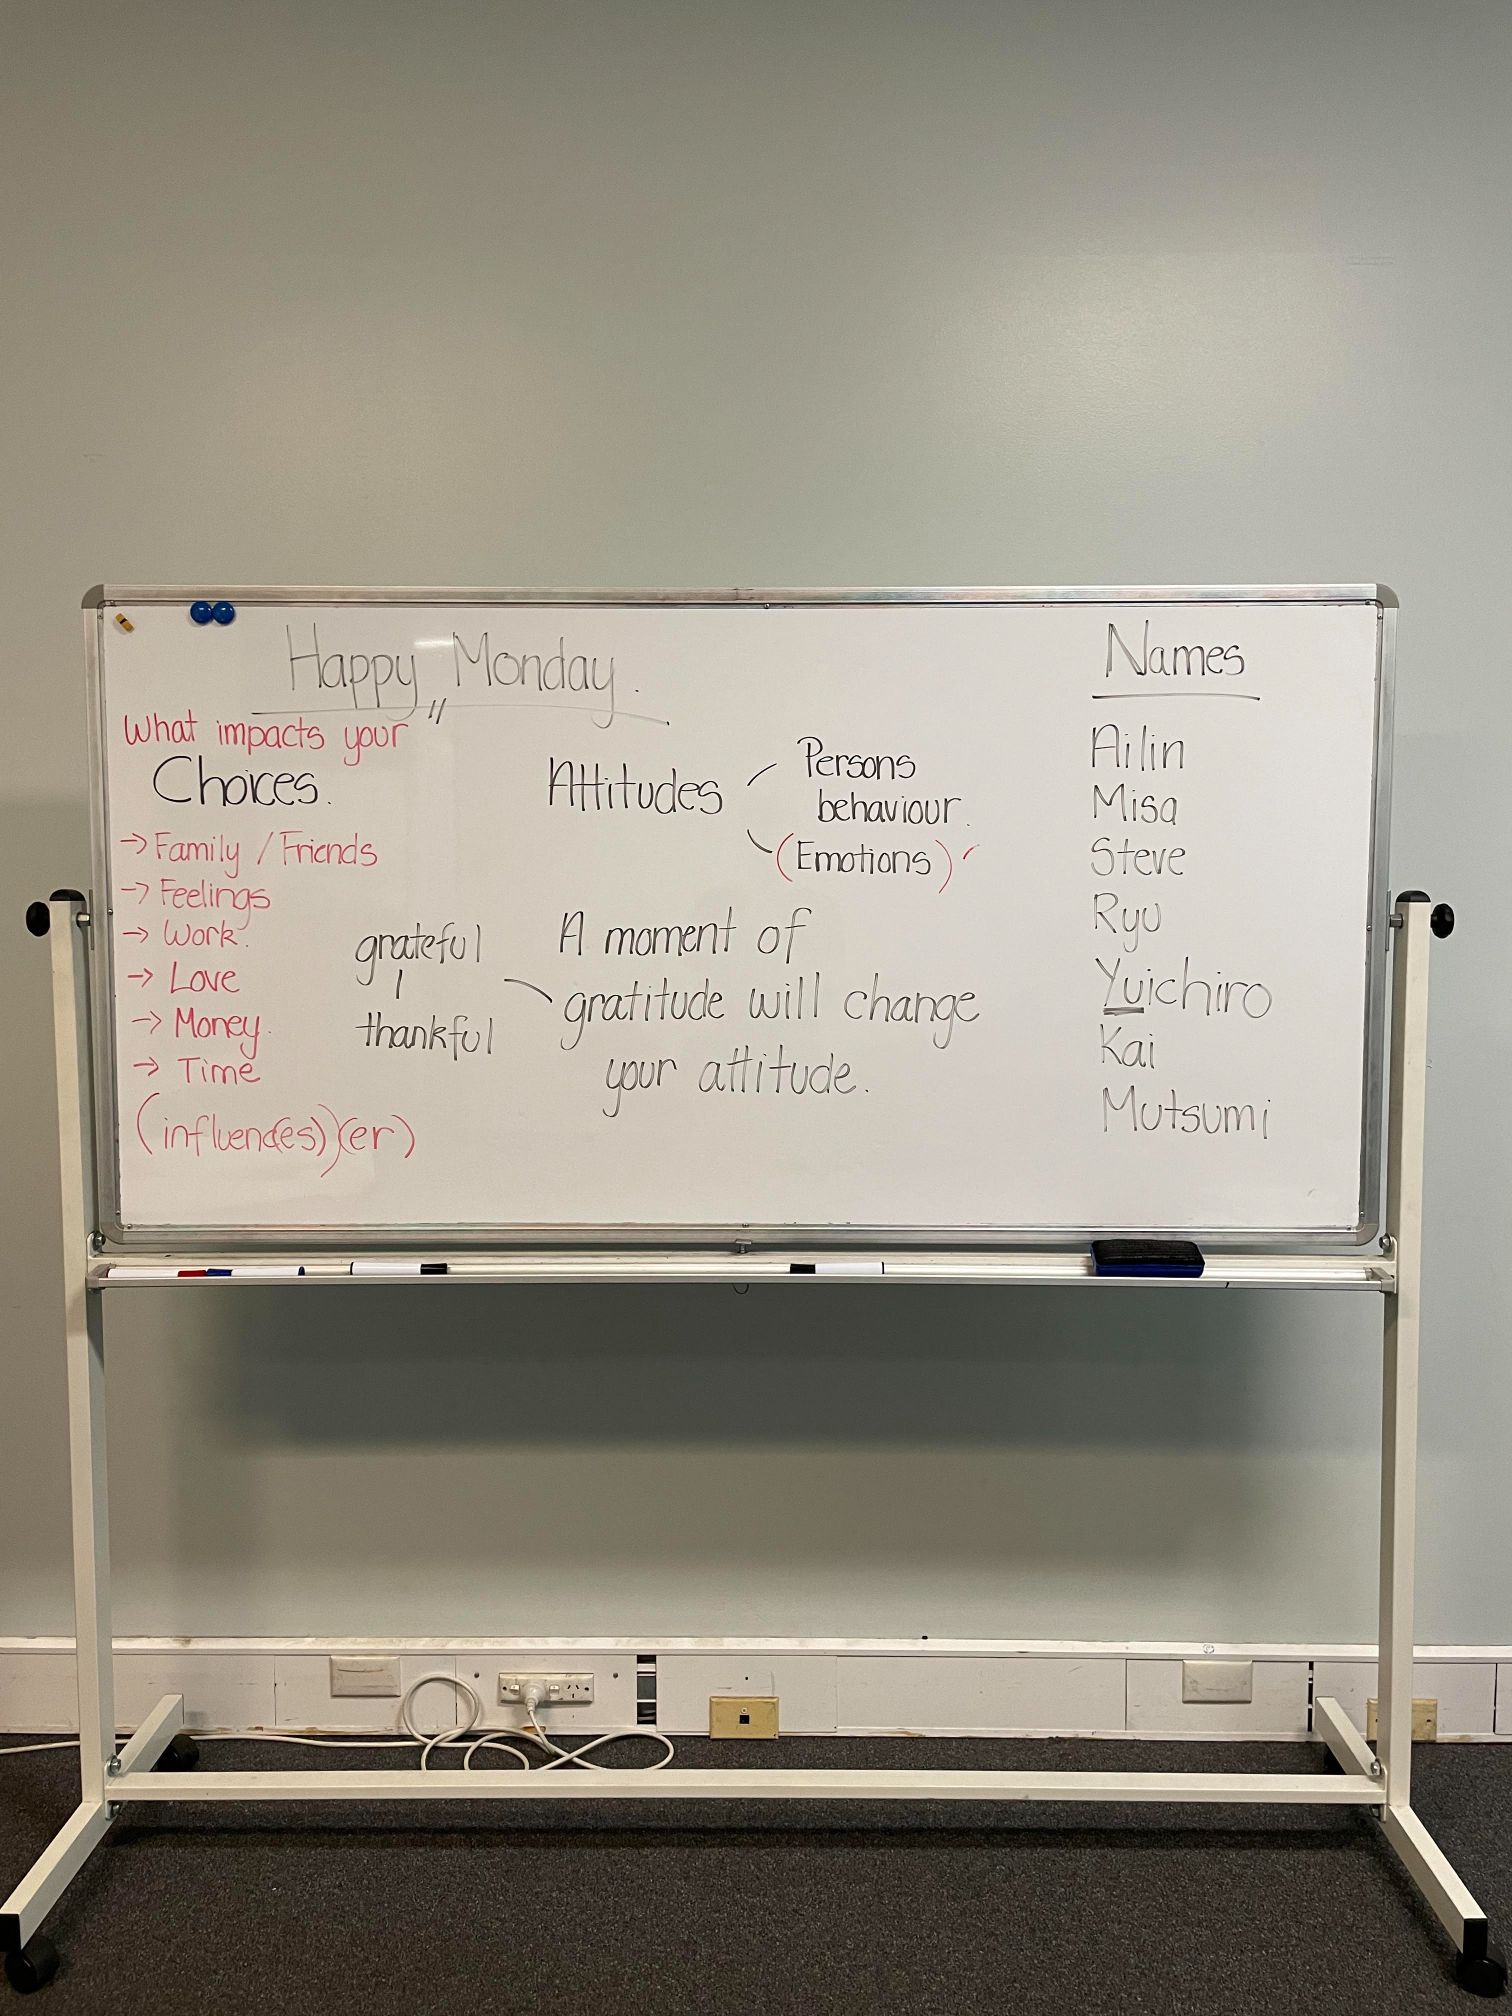 Happy Monday.
"
What impacts your
Choices.
→ Family / Friends
→ Feelings
→ Work.
→ Love
→ Money.
→ Time
(influenc(es))(er)
grateful
thankful
Attitudes
Persons
behaviour.
(Emotions)
A moment of
gratitude will change
your attitude.
Names
Ailin
Misa
Steve
Ryu
Yuichiro
Kai
Mutsumi